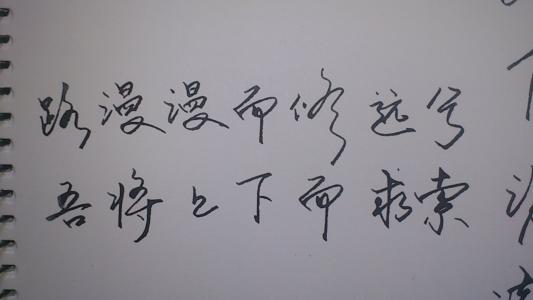 路漫漫而修远兮
吾将上下而求索